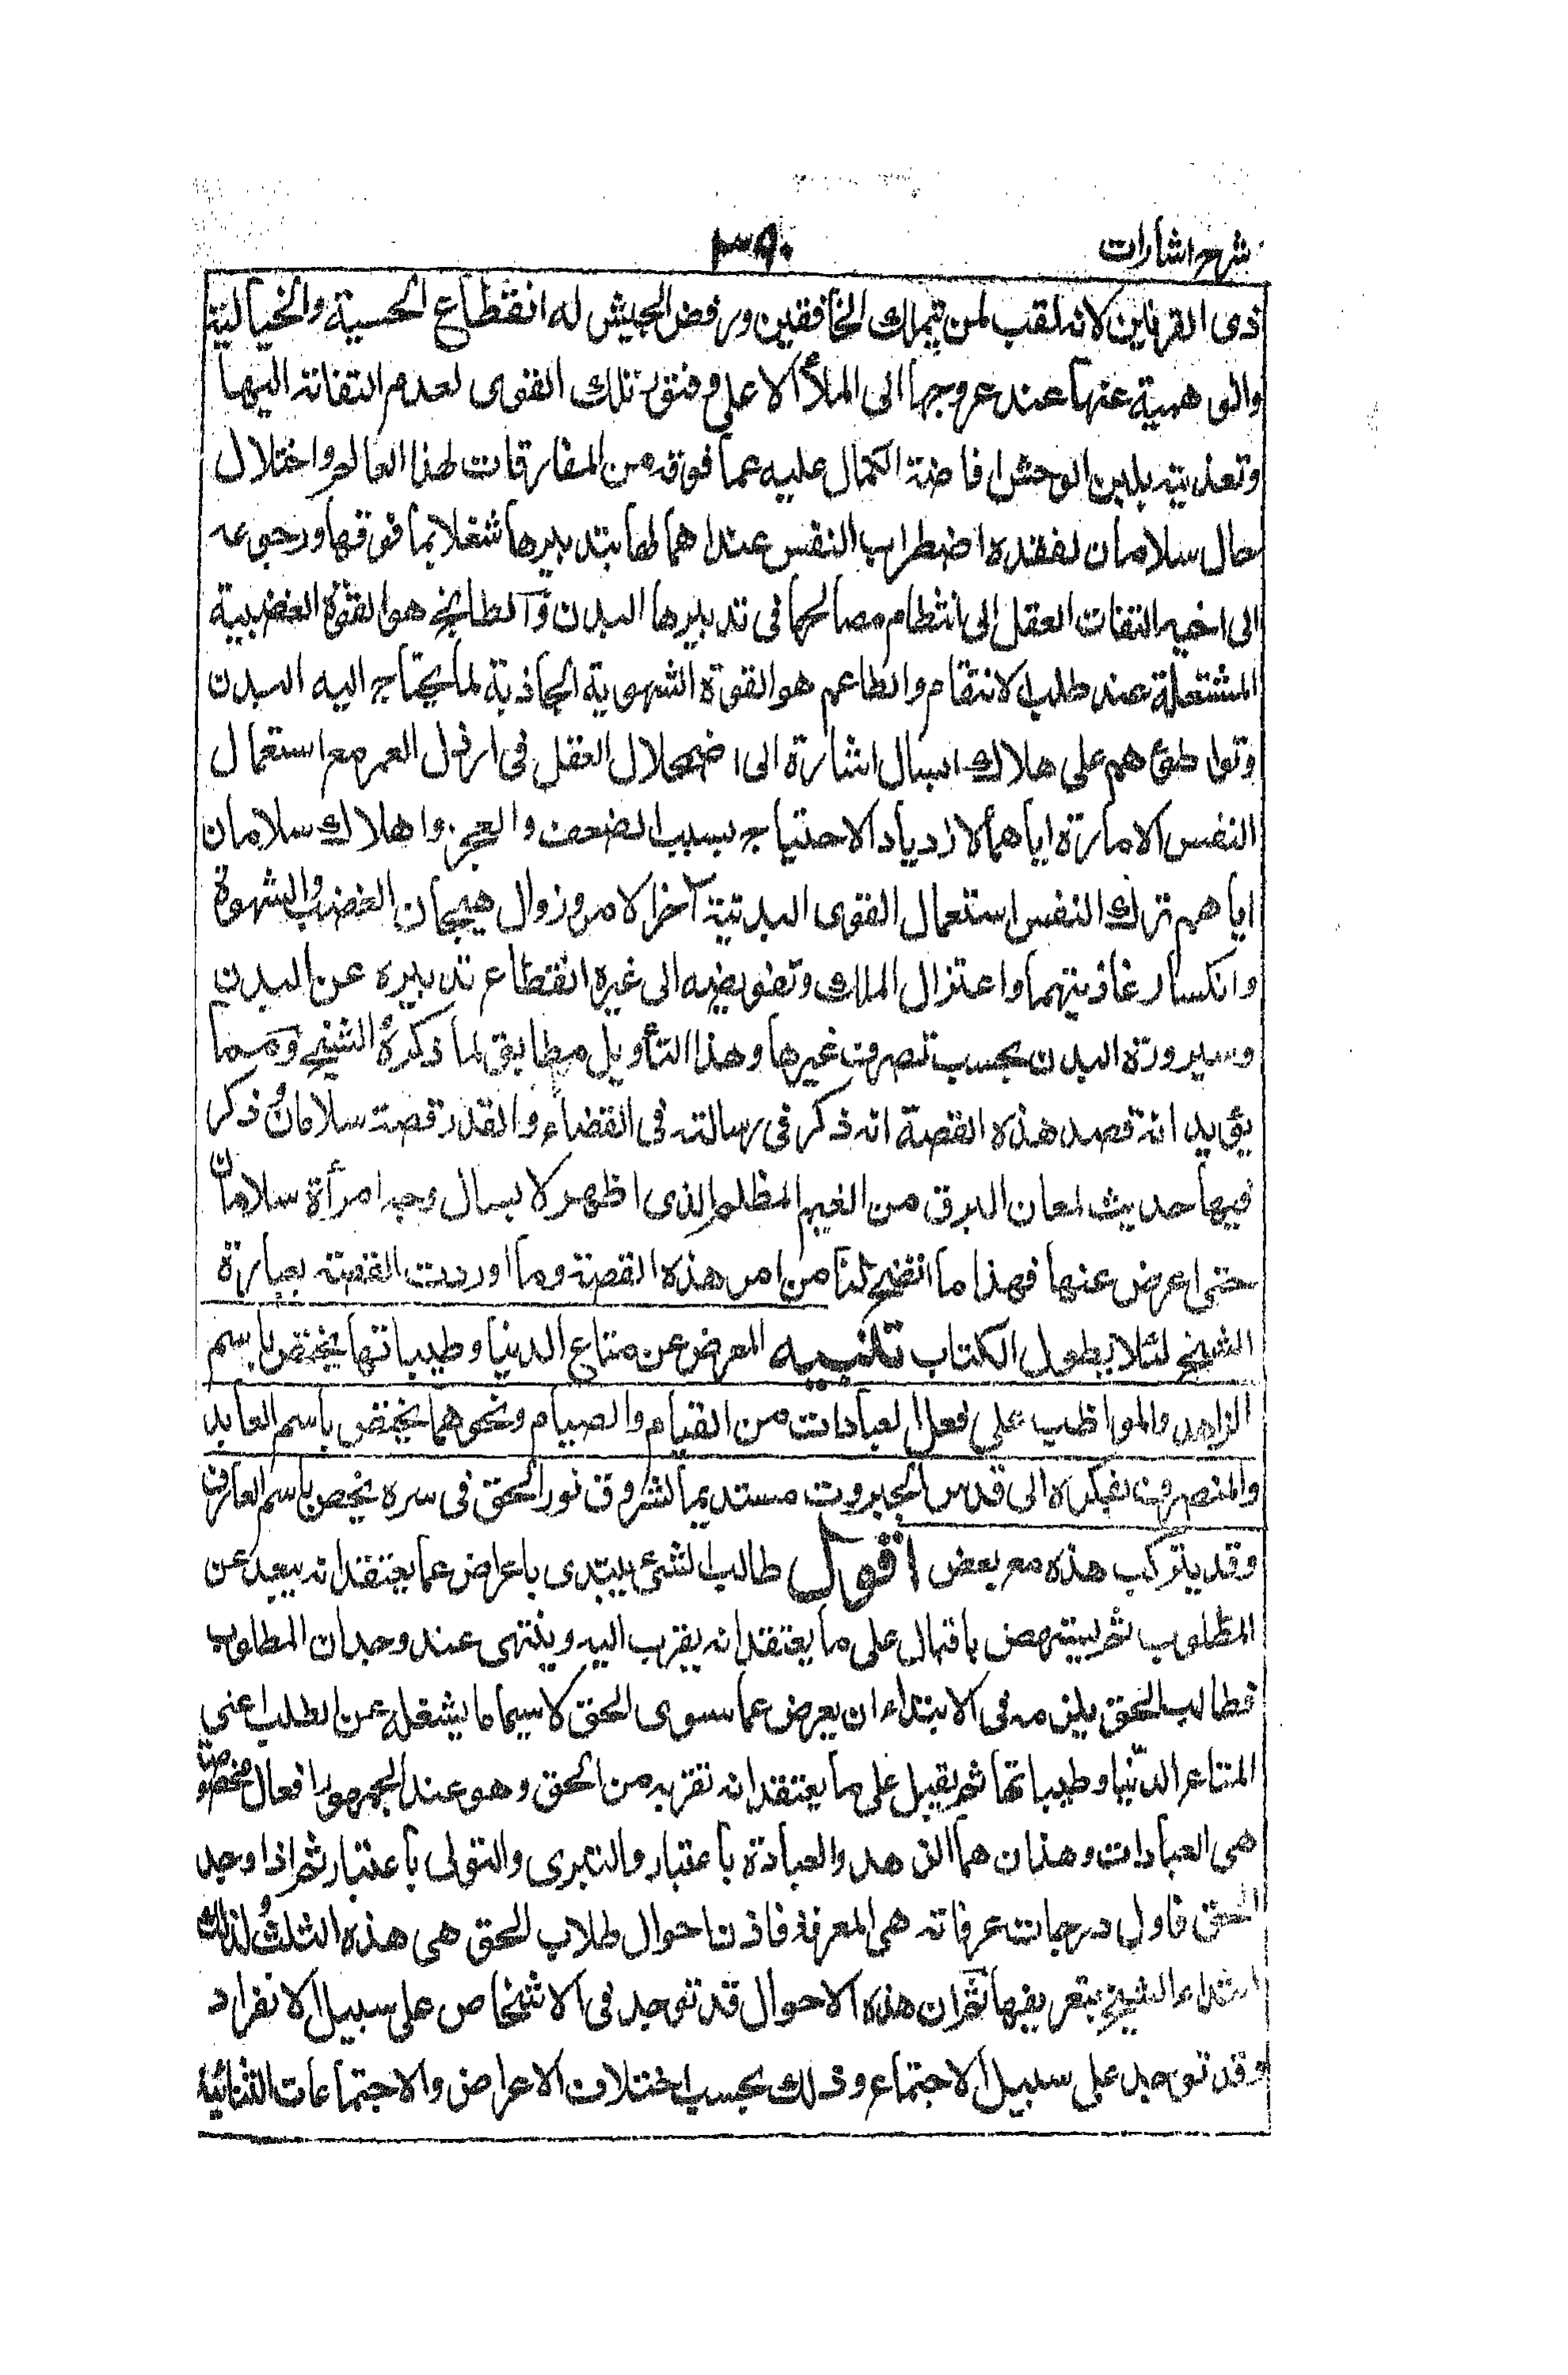 شرح اشارات
٣٩٠
ذى القرنين لانه لقب لمن تملك الخافقين ورفض الجيش له انقطاع الحسية والخيالية
والوهمية عنها عند عروجها الى الملأ الاعلى وفتور تلك القوى لعدم التفاته اليها
وتغذيته بلبن الوحش افاضة الكمال عليه عما فوقه من المفارقات لهذا العالم واختلال
حال سلامان لفقده اضطراب النفس عند اهمالها بتدبيرها شغلا بما فوقها ورجوعه
الى اخيه التفات العقل الى انتظام مصالحها فى تدبيرها البدن والطابخ هو القوة الغضبية
المشتعلة عند طلب الانتقام والطاعم هو القوة الشهوية الجاذبة لما يحتاج اليه البدن
وتواطؤهم على هلاك ابسال اشارة الى اضمحلال العقل فى ارذل العمر مع استعمال
النفس الامارة اياهما لازدياد الاحتياج بسبب الضعف والعجز واهلاك سلامان
اياهم ترك النفس استعمال القوى البدنية آخر الامر وزوال هيجان الغضب والشهوة
وانكسار غاذيتهما واعتزال الملك وتفويضه الى غيره انقطاع تدبيره عن البدن
وسيرورة البدن بحسب تصرف غيرها وهذا التأويل مطابق لما ذكره الشيخ ومما
يؤيد انه قصد هذه القصة انه ذكر فى رسالته فى القضاء والقدر قصة سلامان ذكر
فيها حديث لمعان البرق من الغيم المظلم الذى اظهر لابسال وجه امرأة سلامان
حتى اعرض عنها فهذا ما اتضح لنا من امر هذه القصة وما اوردت القصة بعبارة
الشيخ لئلا يطول الكتاب تنبيه المعرض عن متاع الدنيا وطيباتها يختص باسم
الزاهد والمواظب على فعل العبادات من القيام والصيام ونحوهما يختص باسم العابد
والمنصرف بفكره الى قدس الجبروت مستديما لشروق نور الحق فى سره يخص باسم العارف
وقد يتركب هذه مع بعض اقول طالب الشئ يبتدى باعراض عما يعتقد انه يبعد عن
المطلوب ثم ينتهض باقبال على ما يعتقد انه يقرب اليه وينتهى عند وجدان المطلوب
فطالب الحق يلزمه فى الابتداء ان يعرض عما سوى الحق لاسيما ما يشغله عن الطلب اعنى
المتاع الدنيا وطيباتها ثم يقبل على ما يعتقد انه تقربه من الحق وهو عند الجمهور افعال مخصوصة
هى العبادات وهذان هما الزهد والعبادة باعتبار والتبرى والتولى باعتبار ثم اذا وجد
الحق فاول درجات عرفانه هى المعرفة فاذن احوال طلاب الحق هى هذه الثلث لذلك
ابتداء الشيخ بتعريفها ثم ان هذه الاحوال قد توجد فى الاشخاص على سبيل الانفراد
وقد توجد على سبيل الاجتماع وذلك بحسب اختلاف الاعراض والاجتماعات الثنائية